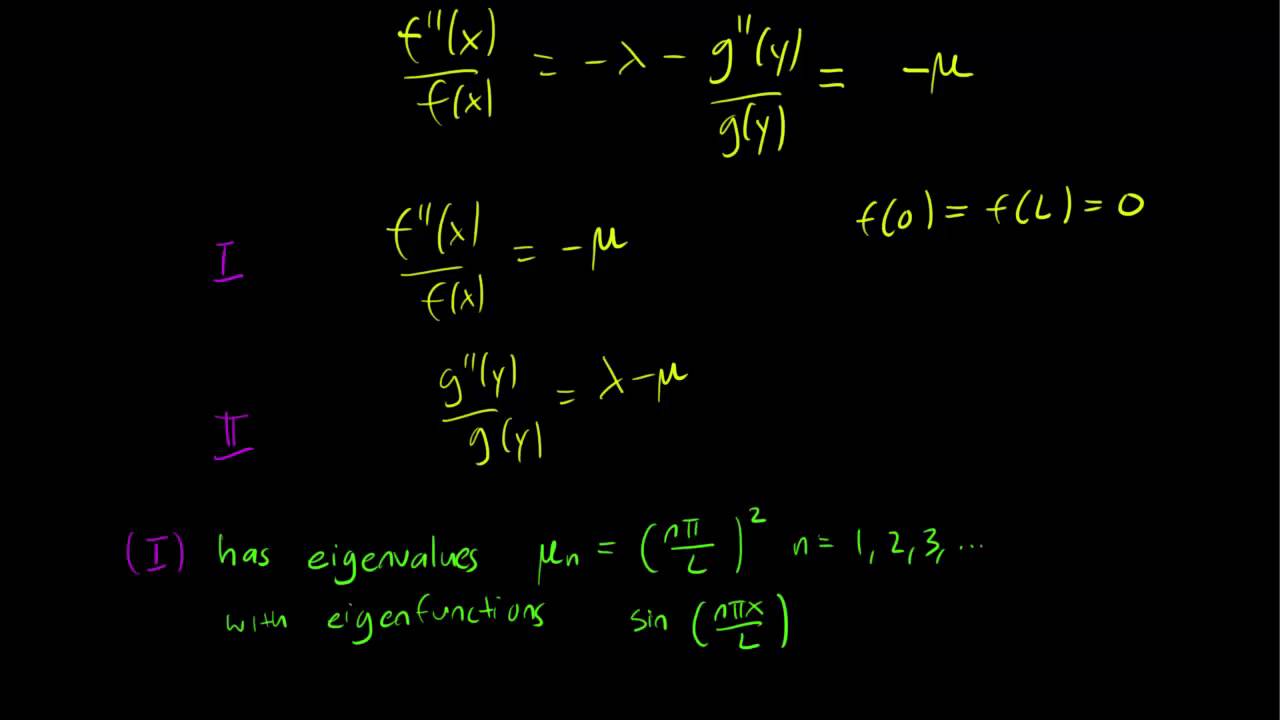 f''(x)/f(x) = -λ - g''(y)/g(y) = -μ
f(0) = f(L) = 0
I f''(x)/f(x) = -μ
II g''(y)/g(y) = λ-μ
(I) has eigenvalues μn = (nπ/L)² n = 1, 2, 3, ...
with eigenfunctions sin (nπx/L)